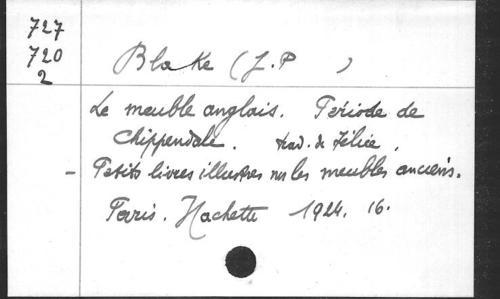 727
720
2
Blake (J.P )
Le meuble anglais. Période de
Chippendale. trad. de Félice.
- Petits livres illustres sur les meubles anciens.
Paris. Hachette 1924. 16.